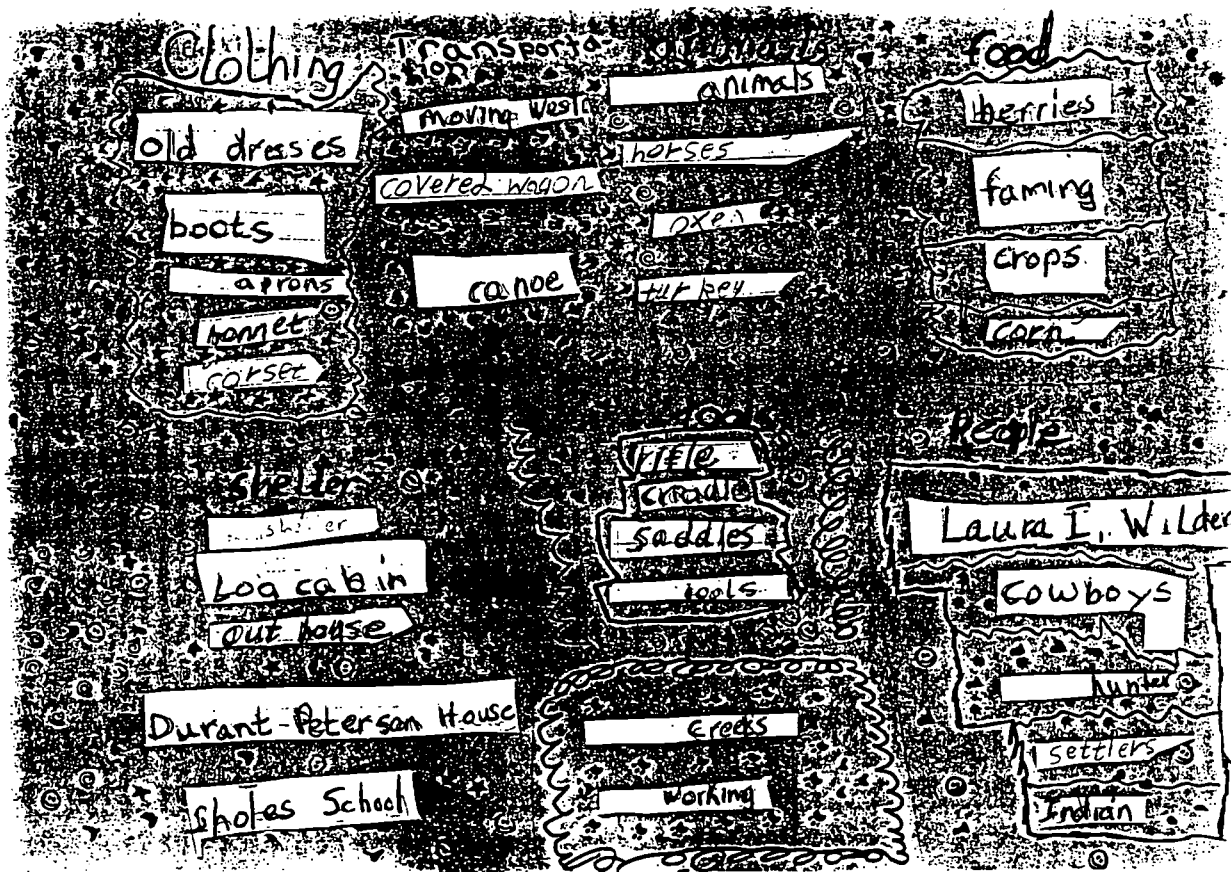 Clothing
old dresses
boots
aprons
bonnet
corset
Transporta-
tion
moving West
covered wagon
canoe
animals
animals
horses
oxen
turkey
food
berries
faming
crops
corn
Shelder
shelter
Log cabin
out house
Durant-Peterson House
Sholes School
tools
rifle
crradle
saddles
tools
creeks
working
People
Laura I. Wilder
cowboys
hunter
settlers
Indian